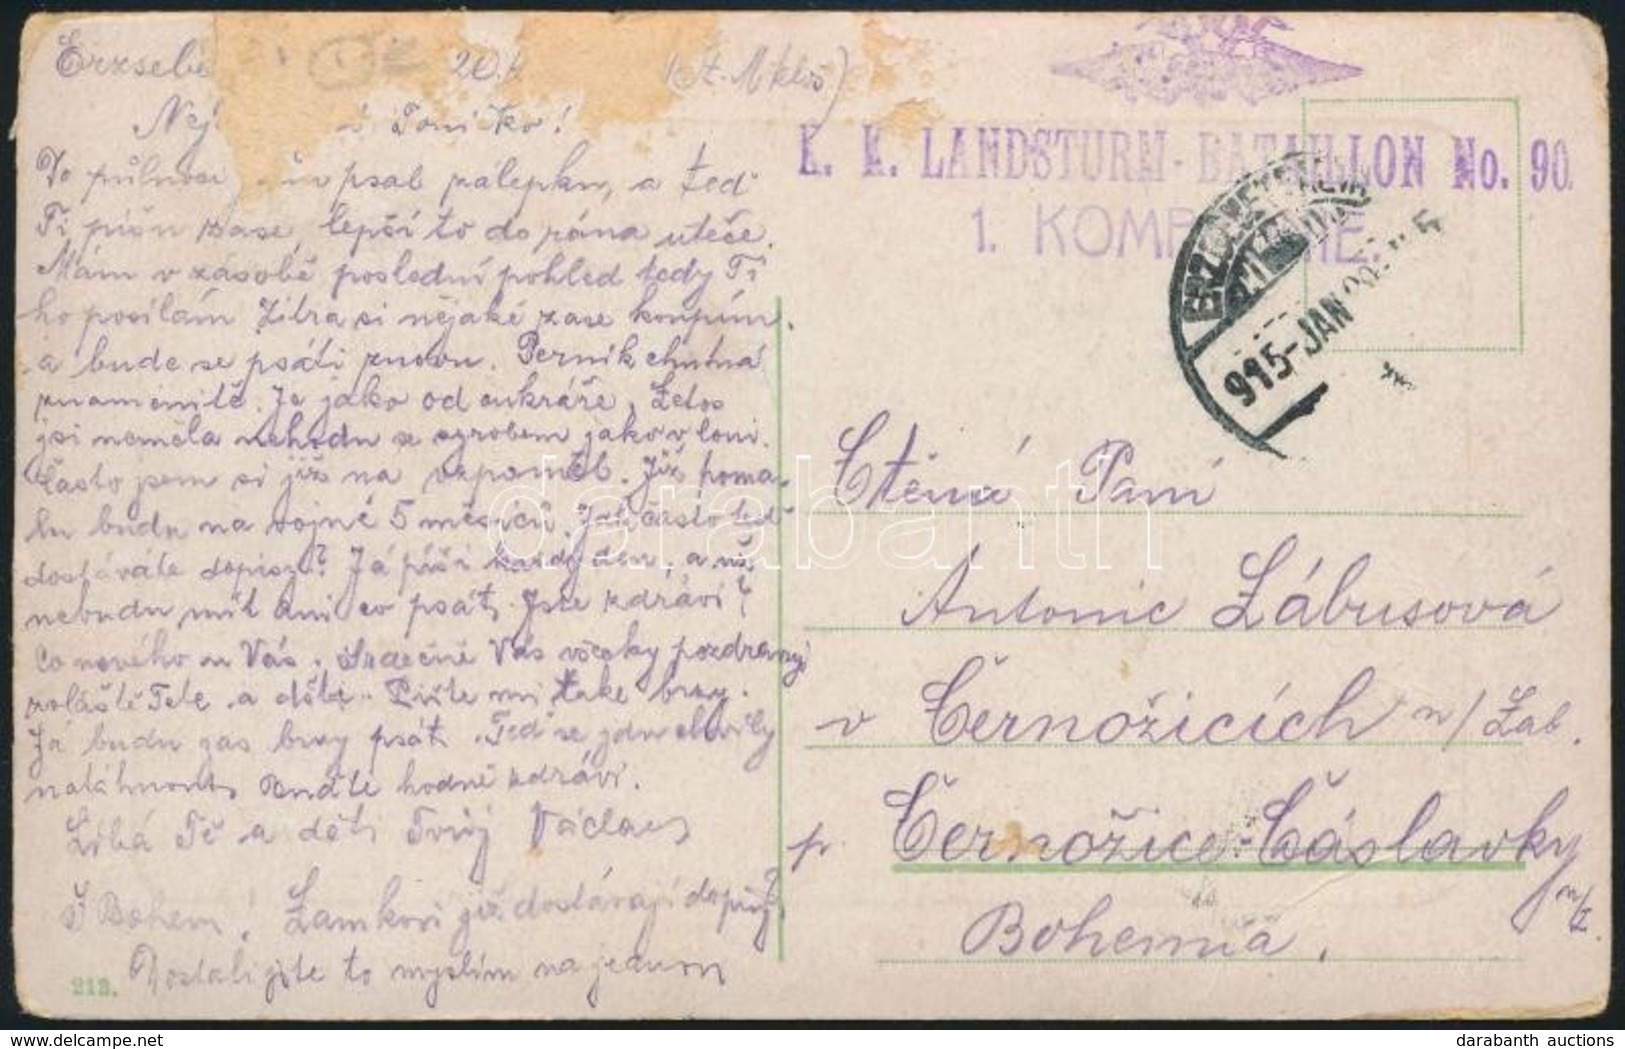 Erzsebé 20. (St. Miklóš)
Toničko!
Po půlnoci psal nálepku, a teď
Ti píšu zase, lepší to do rána uteče.
Mám v zásobě poslední pohled tedy Ti
ho posílám Zítra si nějaké zase koupím.
a bude se psáti znovu. Perník chutná
znamenitě. Je jako od cukráře, Letos
jsi neměla nehodu se syrobem jako v loni.
Často jsem si již na vzpoměl. Již poma-
lu budu na vojně 5 měsíců. Jak často teď
dostáváte dopisy? Já píši každý den, a už
nebudu mít ani co psát. Jste zdrávi?
Co nového u Vás. Srdečně Vás všecky pozdravuji
zvláště Tetě a děti. Pište mi také brzy.
Já budu zas brzy psát. Teď se jdu chvíly
natáhnout, Buďte hodně zdrávi.
Líbá Tě a děti Tvůj Václav
S Bohem! Zamkovi již dostávají dopisy?
Dostali jste to myslím najednou
213.
K. K. LANDSTURM-BATAILLON No. 90.
1. KOMPAGNIE.
915-JAN
Ctěná Paní
Antonie Lábusová
v Černožicích n/Lab.
p. Černožice-Čáslavky
n/L.
Bohemia.
darabanth
darabanth auctions